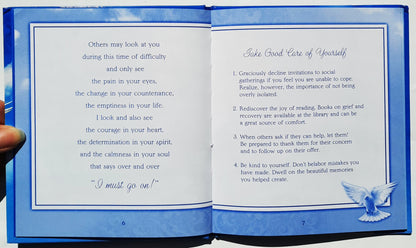 Others may look at you
during this time of difficulty
and only see
the pain in your eyes,
the change in your countenance,
the emptiness in your life.
I look and also see
the courage in your heart,
the determination in your spirit,
and the calmness in your soul
that says over and over
"I must go on!"
6
Take Good Care of Yourself
1. Graciously decline invitations to social
gatherings if you feel you are unable to cope.
Realize, however, the importance of not being
overly isolated.
2. Rediscover the joy of reading. Books on grief and
recovery are available at the library and can be
a great source of comfort.
3. When others ask if they can help, let them!
Be prepared to thank them for their concern
and to follow up on their offer.
4. Be kind to yourself. Don't belabor mistakes you
have made. Dwell on the beautiful memories
you helped create.
7